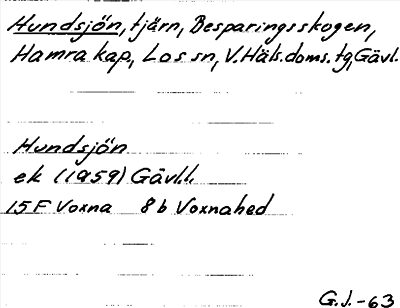 Hundsjön, tjärn, Besparingsskogen,
Hamra kap, Los sn, V.Häls.doms.tg, Gävl.
Hundsjön
ek (1959) Gävl.l.
15F Voxna 8b Voxnahed
G.J.-63